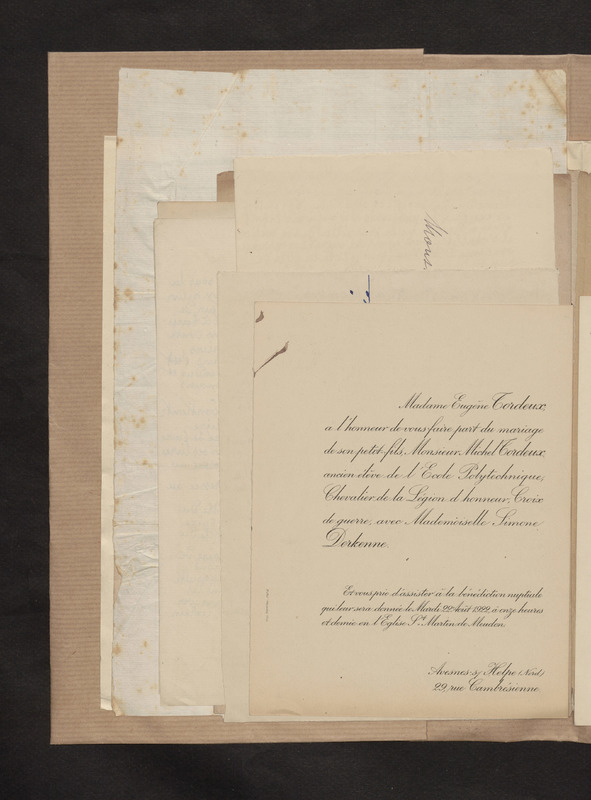 Mons.
Madame Eugène Tordeux,
a l'honneur de vous faire part du mariage
de son petit-fils, Monsieur Michel Tordeux,
ancien élève de l'Ecole Polytechnique,
Chevalier de la Légion d'honneur, Croix
de guerre, avec Mademoiselle Simone
Derkenne.
Et vous prie d'assister à la bénédiction nuptiale
qui leur sera donnée le Mardi 22 Août 1922, à onze heures
et demie en l'Eglise St Martin de Meudon.
Avesnes-s/-Helpe (Nord)
29, rue Cambrésienne.